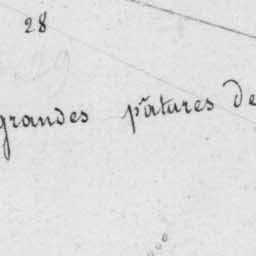 28
grandes pâtures de